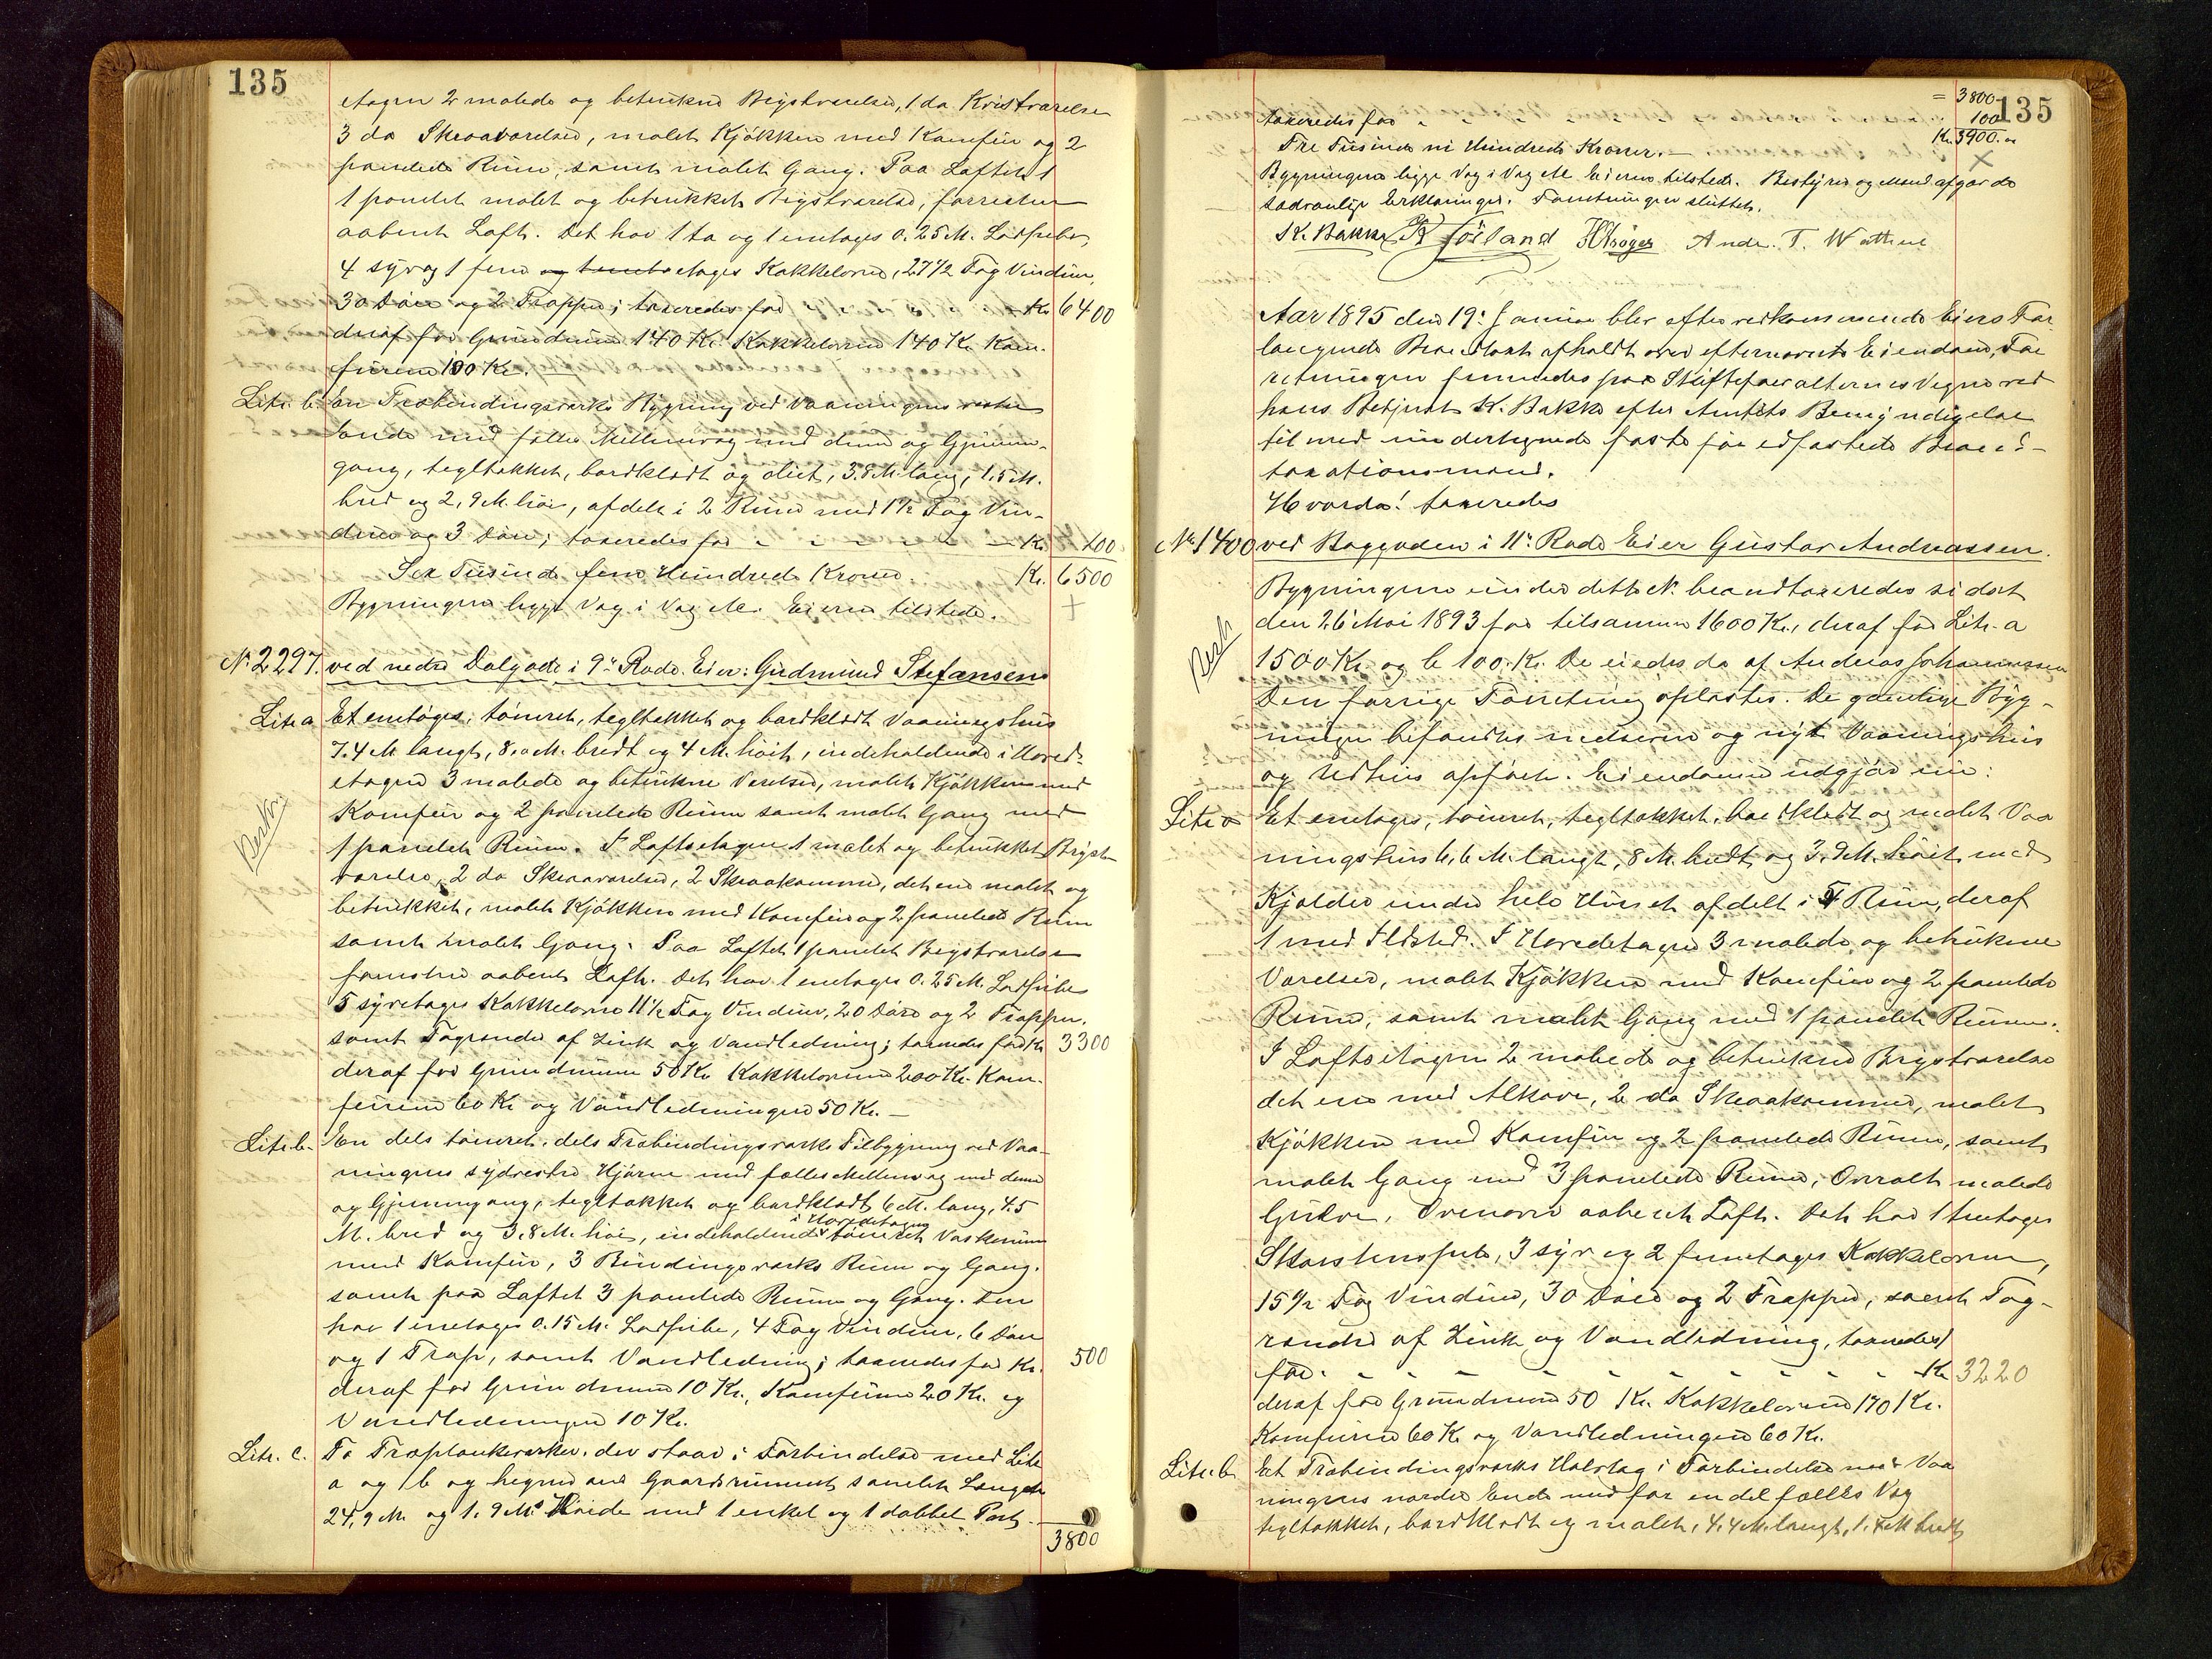 135
etagen 2 malede og betrukne Brystværelser, 1 do Kvistværelse
3 do Skraaværelser, malet Kjøkken med Komfur og 2
panelede Rum, samt malet Gang. Paa Loftet 1
1 panelet malet og betrukket Brystværelse, forresten
aabent Loft. Det har 1 to og 1 enetages 0.25 M. Lodpibe,
4 syv og 1 fem etages Kakkelovne, 27 1/2 Fag Vinduer,
30 Døre og 2 Trapper; taxeredes for Kr 6400
deraf for Grundmuren 140 Kr. Kakkelovnene 140 Kr. Kom-
furene 100 Kr.
Litr. b. En Træbindingsværks Bygning ved Vaaningens vestre
Ende med fælles Mellemvæg med denne og Gjennem-
gang, tegltækket, bordklædt og oliet, 3.8 M. lang, 1.5 M.
bred og 2,9 M. høi, afdelt i 2 Rum med 1 1/2 Fag Vin-
duer og 3 Døre; taxeredes for - - - - - Kr. 100
Sex Tusinde fem Hundrede Kroner. Kr. 6500
Bygningen ligge Væg i Væg M. Eieren tilstede. +
N. 2297. ved nedre Dalgade i 9de Rode. Eier: Gudmund Stefansen
Litr a Et enetages, tømret, tegltækket og bordklædt Vaaningshus
7.4 M langt, 8.0 M. bredt og 4 M. høit, indeholdende i Hoved-
etagen 3 malede og betrukne Værelser, malet Kjøkken med
Komfur og 2 panelede Rum samt malet Gang med
1 panelet Rum. I Loftsetagen 1 malet og betrukket Bryst-
værelse, 2 do Skraaværelser, 2 Skraakammere, det ene malet og
betrukket, malet Kjøkken med Komfur og 2 panelede Rum
samt malet Gang. Paa Loftet 1 panelet Brystværelse
forresten aabent Loft. Det har 1 enetages 0.25 M. Lodpibe
5 syvetages Kakkelovne 11 1/2 Fag Vinduer, 20 Døre og 2 Trapper,
samt Tagrender af Zink og Vandledning; taxeredes for Kr 3300
deraf for Grundmuren 50 Kr Kakkelovnene 200 Kr. Kom-
furene 60 Kr og Vandledningen 50 Kr. -
Litr. b. En dels tømret, dels Træbindingsværks Tilbygning ved Vaa-
ningens sydvestre Hjørne med fælles Mellemvæg med denne
og Gjennemgang, tegltækket og bordklædt 6 M. lang, 4.5
M. bred og 3.8 M. høi, indeholdende i Hovedetagen tømret Vaskerum
med Komfur, 3 Bindingsværks Rum og Gang.
samt paa Loftet 3 panelede Rum og Gang. Den
har 1 enetages 0.15 M. Lodpibe, 4 Fag Vinduer, 6 Døre
og 1 Trap, samt Vandledning; taxeredes for Kr. 500
deraf for Grundmuren 10 Kr., Komfuren 20 Kr. og
Vandledningen 10 Kr.
Litr. c. To Træplankeværker. der staar i Forbindelse med Litr
a og b og hegner om Gaardsrummet samlet Længde
24,9 M. og 1.9 M. Høide med 1 enkel og 1 dobbel Port.
3800
135
= 3800
taxeredes for - - - - 100
Tre Tusinde ni Hundrede Kroner. - Kr. 3900. -
Bygningen ligge Væg i Væg M. Eieren tilstede. Bestyrer og Mænd afgav de
sædvanlige Erklæringer. Forretningen sluttet.
K. Bakke Jøsland HKrøger Andr. T. Watne
Aar 1895 den 19. Januar blev efter vedkommende Eiers For-
langende Brandtaxt afholdt over efternævnte Eiendom, For-
retningen fremmedes paa Skiftefor­valterens Vegne ved
hans Betjent K. Bakke efter Amtets Bemyndigelse
til med undertegnede faste før edfæstede Brand-
taxationsmænd.
Hvorda! taxeredes
N. 1400 ved Baggaden i 11te Rode Eier Gustav Andreassen.
Bygningerne under dette N. brandtaxeredes sidst
den 26 Mai 1893 for tilsammen 1600 Kr., deraf for Litr. a
1500 Kr. og b 100 Kr. De eiedes da af Andreas Johannessen
Den forrige Forretning oplæstes. De gamle Byg-
ninger befandtes nedrevne og nyt Vaaningshus
og Udhus opført. Eiendommen udgjør nu:
Litr. a Et enetages, tømret, tegltækket, bordklædt og malet Vaa
ningshus 6,6 M. langt, 8 M. bredt og 3.9 M. høit med
Kjælder under hele Huset afdelt i 5 Rum, deraf
1 med Ildsted. I Hovedetagen 3 malede og betrukne
Værelser, malet Kjøkken med Komfur og 2 panelede
Rum, samt malet Gang med 1 panelet Rum.
I Loftsetagen 2 malede og betrukne Brystværelse
det ene med Alkove, 2 do Skraakammere, malet
Kjøkken med Komfur og 2 panelede Rum, samt
malet Gang med 3 panelede Rum, Overalt malede
Gulve. Ovenover aabent Loft. Det har 1 tretages
Skorstenspibe, 3 syv og 2 femetages Kakkelovne,
15 1/2 Fag Vinduer, 30 Døre og 2 Trapper, samt Tag-
render af Zink og Vandledning, taxeredes
for. - - - - - - - Kr 3220
deraf for Grundmuren 50 Kr. Kakkelovnene 170 Kr.
Komfurene 60 Kr og Vandledningen 60 Kr.
Litr. b Et Træbindingsværks Halvtag i Forbindelse med Vaa
ningens nordre Ende med for en del fælles Væg
tegltækket, bordklædt og malet, 4.4 M. langt, 1.8 M bredt,